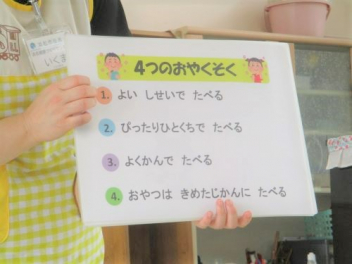 4つのおやくそく
1. よい しせいで たべる
2. ぴったりひとくちで たべる
3. よくかんで たべる
4. おやつは きめたじかんに たべる